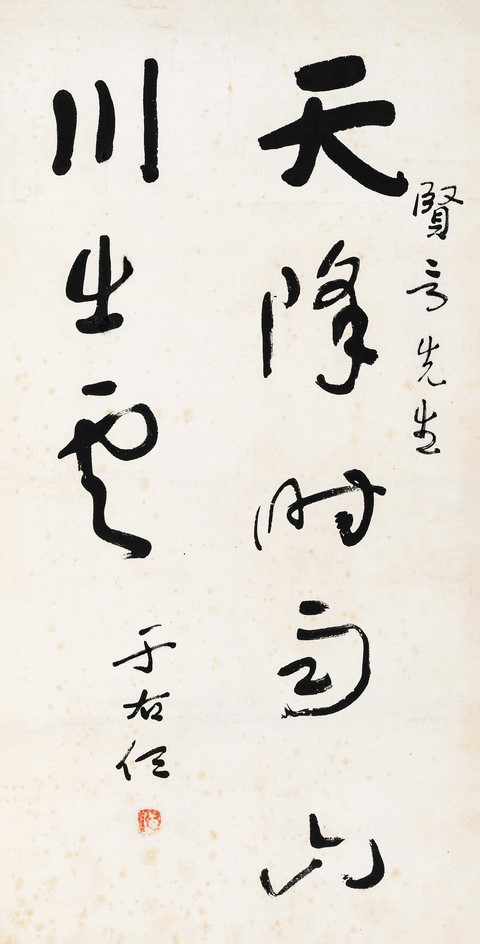 賢先生
天降時雨山
川出雲
于右任